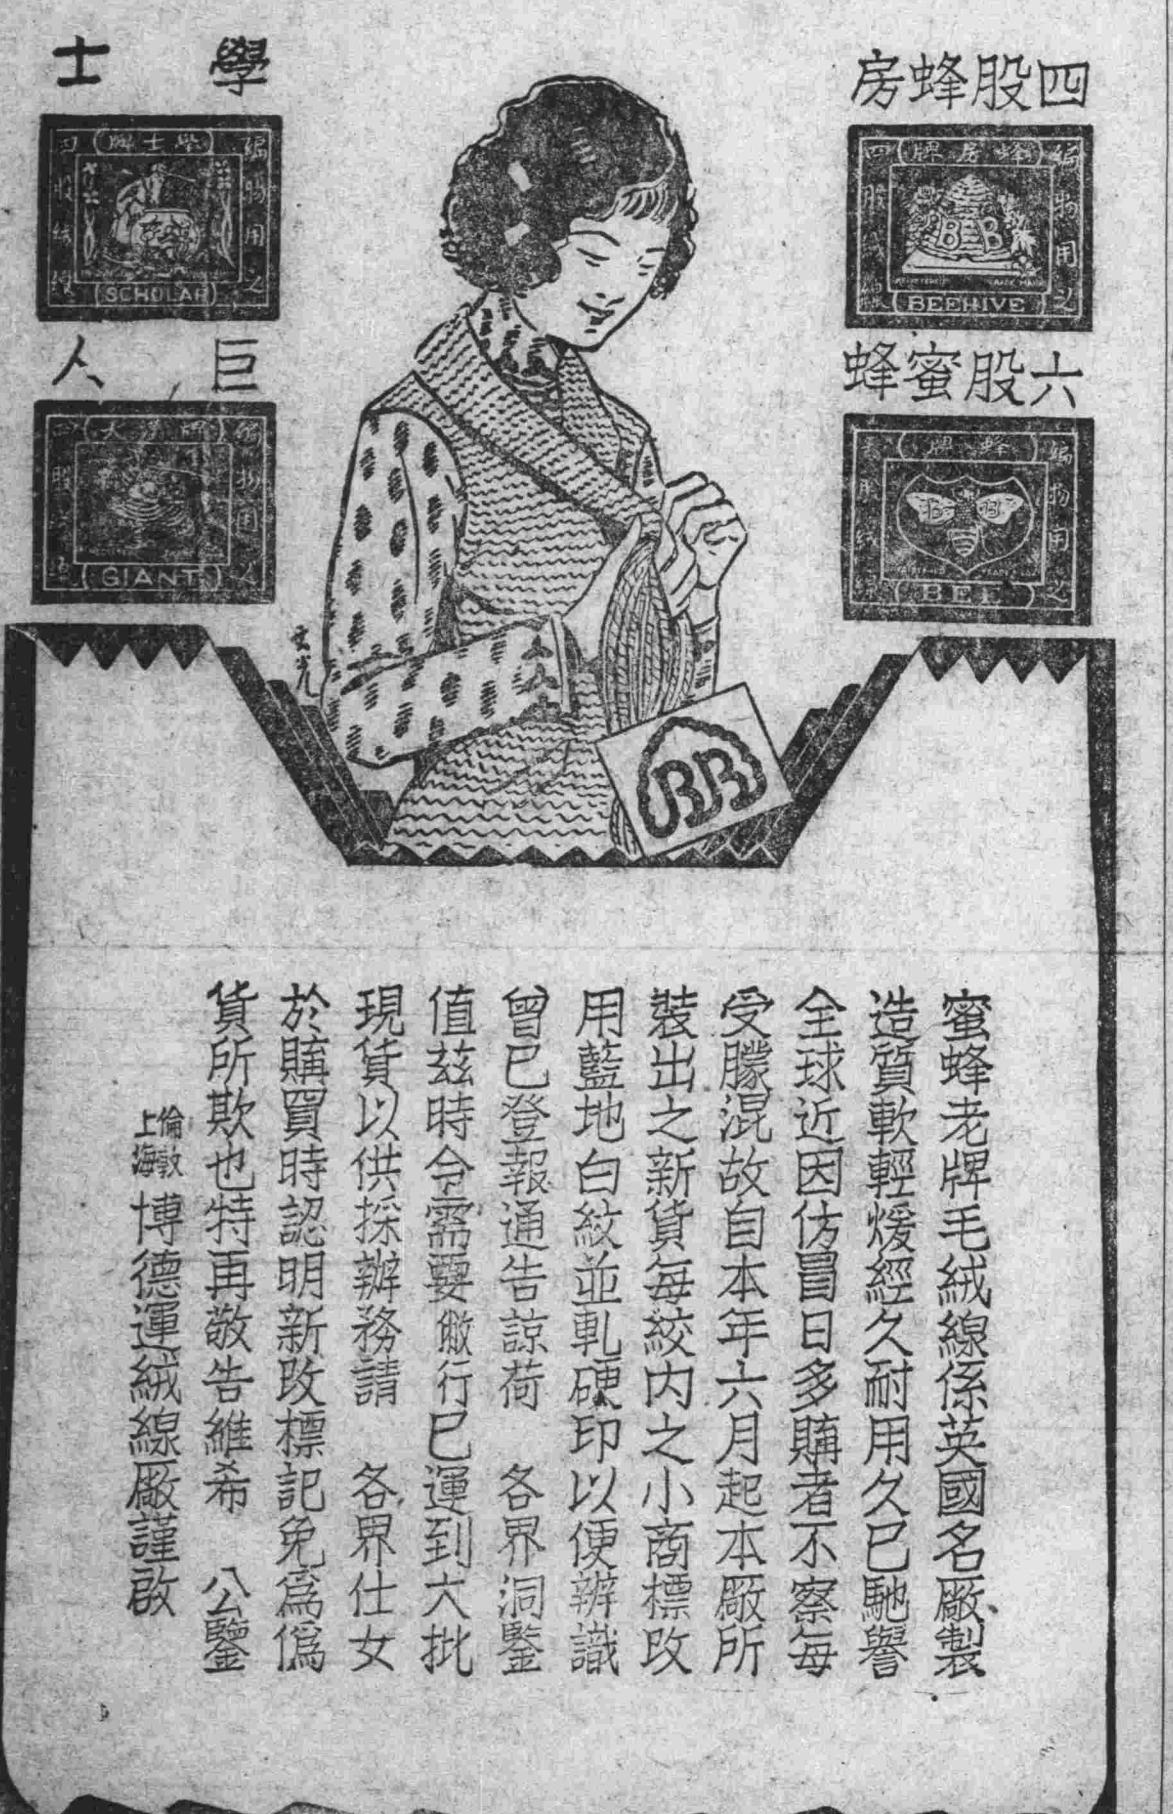 四股蜂房
蜂房牌
編物用之
四股絨線
BEEHIVE
六股蜜蜂
蜂牌
編物用之
BEE
學士
學士牌
四股絨線
SCHOLAR
巨人
GIANT
文光
BB
蜜蜂老牌毛絨線係英國名廠製
造質軟輕煖經久耐用久已馳譽
全球近因仿冒日多購者不察每
受朦混故自本年六月起本廠所
裝出之新貨每絞內之小商標改
用藍地白紋並軋硬印以便辨識
曾已登報通告諒荷　各界洞鑒
值茲時令需要　行已運到大批
現貨以供採辦務請　各界仕女
於購買時認明新改標記免為偽
貨所欺也特再敬告維希　公鑒
倫敦
上海
博德運絨線廠謹啟